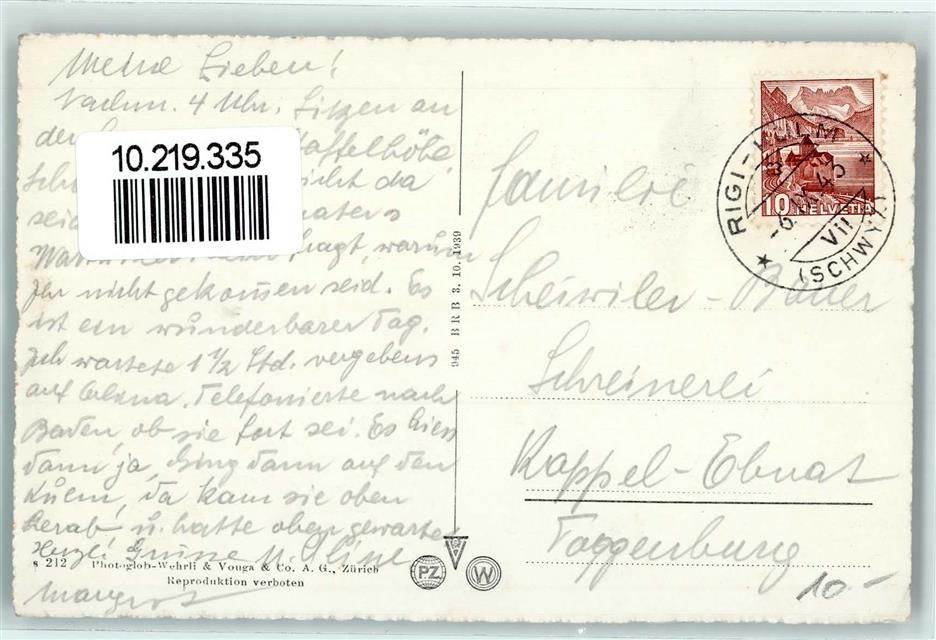 Meine Lieben!
Nachm. 4 Uhr. Sitzen an
der
10.219.335
Staffelhöhe
nicht da
seid
Vaters
fragt, warum
Ihr nicht gekommen seid. Es
ist ein wunderbarer Tag.
Ich wartete 1 1/2 Std. vergebens
auf Telefonierte nach
Baden, ob sie fort sei. Es hiess
dann ja, Ging dann auf den
Kulm, da kam sie oben
herab u. hatte oben gewartet
Herzl. Grüsse
s 212 Photoglob-Wehrli & Vouga & Co. A. G., Zürich
Reproduktion verboten
945 B R B 3. 10. 1939
PZ
W
RIGI-KULM
VII
(SCHWYZ)
10 HELVETIA
Familie
Scheiwiler-Bauer
Schreinerei
Kappel-Ebnat
Toggenburg
10.-